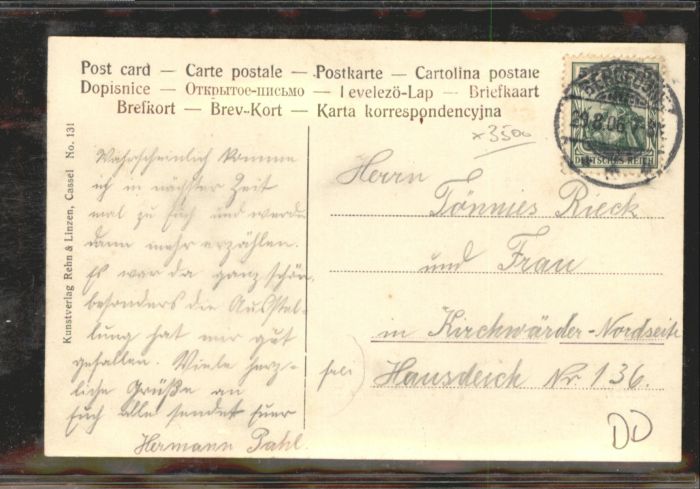 Post card — Carte postale — Postkarte — Cartolina postale
Dopisnice — Открытое-письмо — Levelezö-Lap — Briefkaart
Brefkort — Brev-Kort — Karta korrespondencyjna
x 3500
5
29.8.06
DEUTSCHES REICH
Kunstverlag Rehn & Linzen, Cassel No. 131
Wahrscheinlich komme
ich in nächster Zeit
mal zu Euch und werde
dann mehr erzählen.
Es war da ganz schön,
besonders die Ausstel-
lung hat mir gut
gefallen. Viele herz-
liche Grüße an
Euch alle sendet Euer
Hermann Pahl.
Herrn
Tönnies Rieck
und Frau
in Kirchwärder-Nordseite
frei) Hausdeich Nr. 136.
DD